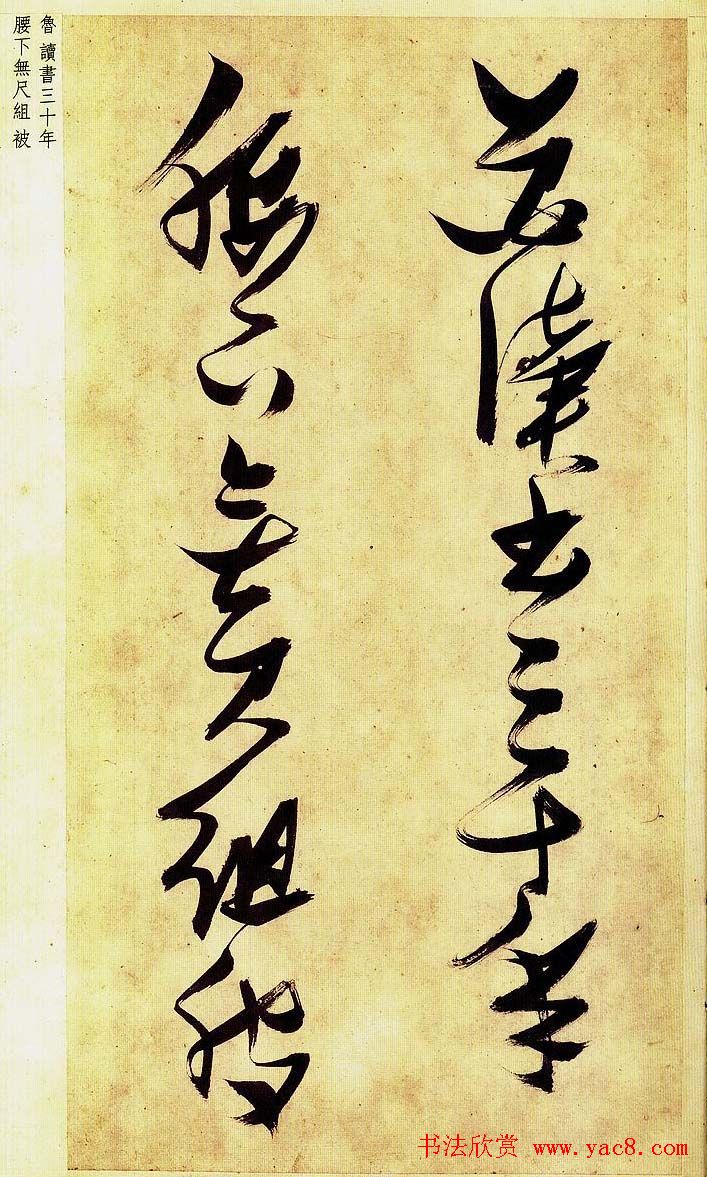 魯讀書三十年
腰下無尺組被
魯 讀書三十年
腰下無尺組 被
书法欣赏 www.yac8.com